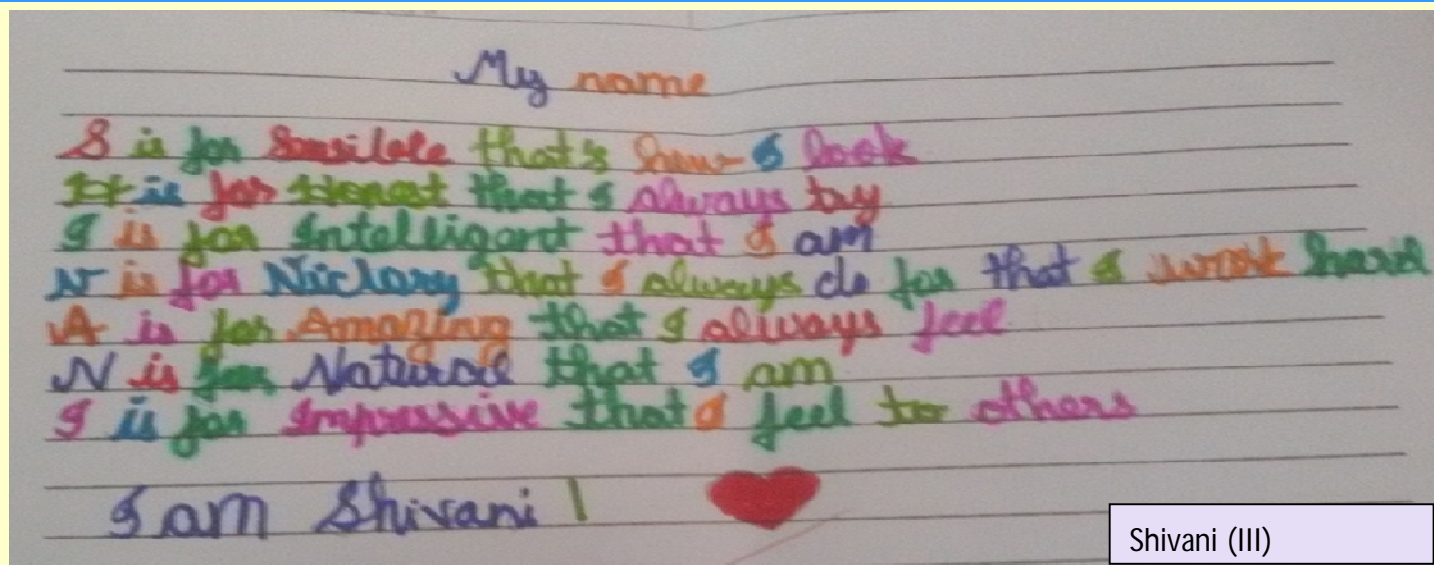 My name
S is for Sensible that's how I look
H is for Honest that I always try
I is for Intelligent that I am
is for that I always do for that I work hard
A is for Amazing that I always feel
N is for Natural that I am
I is for Impressive that I feel to others
I am Shivani !
Shivani (III)